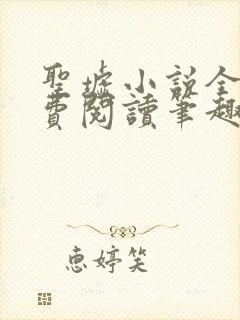 聖墟小說全
費閱讀筆趣
惠婷笑